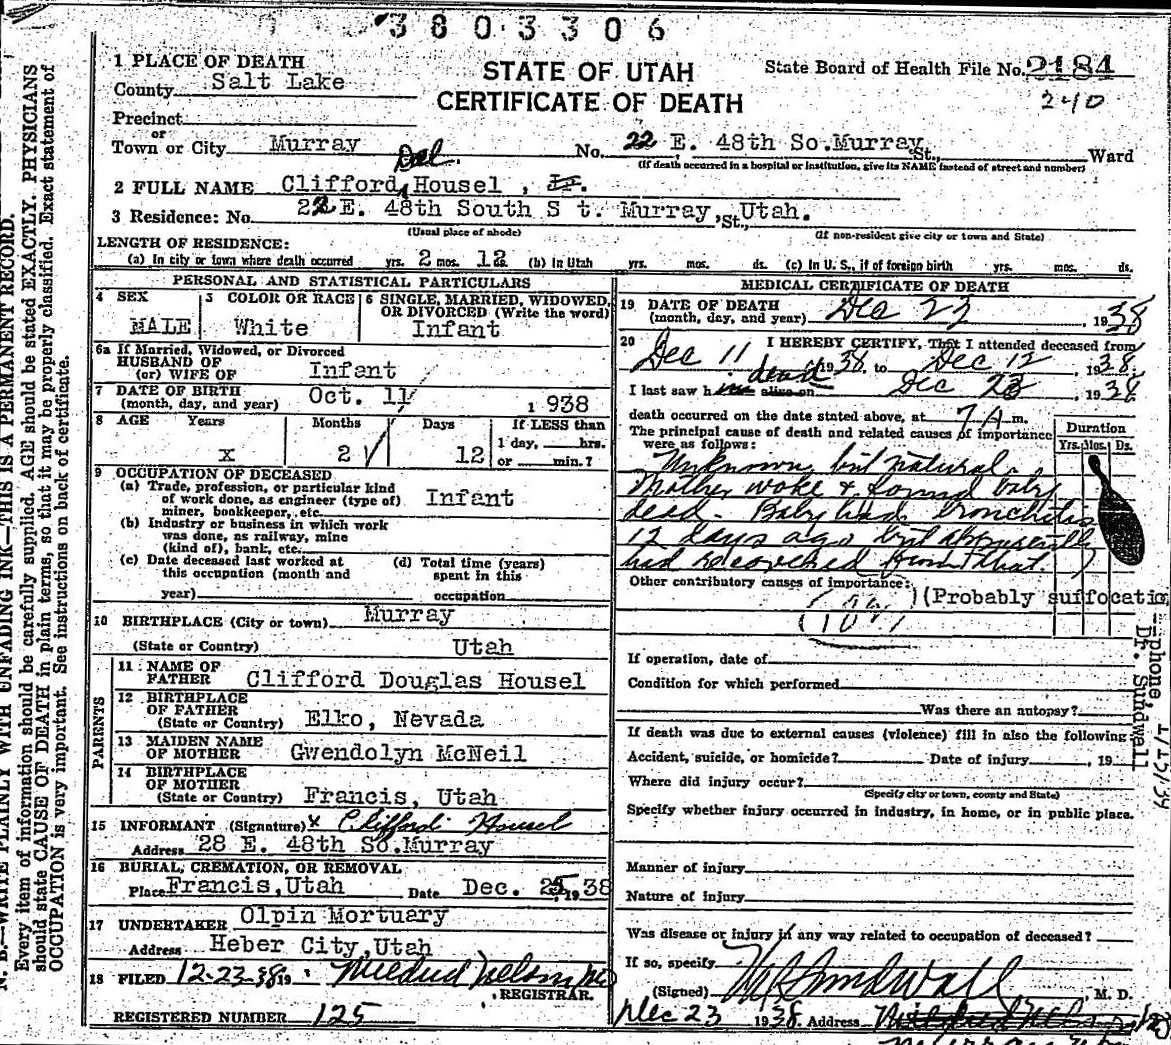 3803306
1 PLACE OF DEATH
County Salt Lake
STATE OF UTAH
CERTIFICATE OF DEATH
State Board of Health File No. 2184
240
Precinct
or
Town or City Murray
No. 22 E. 48th So. Murray St., Ward
(If death occurred in a hospital or institution, give its NAME instead of street and number)
Del.
2 FULL NAME Clifford Housel, Jr.
3 Residence: No. 22 E. 48th South S t. Murray, St. Utah.
(Usual place of abode) (If non-resident give city or town and State)
LENGTH OF RESIDENCE:
(a) In city or town where death occurred yrs. 2 mos. 12 ds. (b) In Utah yrs. mos. ds. (c) In U. S., if of foreign birth yrs. mos. ds.
PERSONAL AND STATISTICAL PARTICULARS
4 SEX MALE
5 COLOR OR RACE White
6 SINGLE, MARRIED, WIDOWED, OR DIVORCED (Write the word) Infant
6a If Married, Widowed, or Divorced
HUSBAND OF
(or) WIFE OF Infant
7 DATE OF BIRTH
(month, day, and year) Oct. 11, 1938
8 AGE Years Months Days If LESS than
x 2 12 1 day, hrs.
or min.?
9 OCCUPATION OF DECEASED
(a) Trade, profession, or particular kind
of work done, as engineer (type of) Infant
miner, bookkeeper, etc.
(b) Industry or business in which work
was done, as railway, mine
(kind of), bank, etc.
(c) Date deceased last worked at
this occupation (month and
year)
(d) Total time (years)
spent in this
occupation
10 BIRTHPLACE (City or town) Murray
(State or Country) Utah
PARENTS
11 NAME OF
FATHER Clifford Douglas Housel
12 BIRTHPLACE
OF FATHER
(State or Country) Elko, Nevada
13 MAIDEN NAME
OF MOTHER Gwendolyn McNeil
14 BIRTHPLACE
OF MOTHER
(State or Country) Francis, Utah
15 INFORMANT (Signature) x Clifford Housel
Address 28 E. 48th So. Murray
16 BURIAL, CREMATION, OR REMOVAL
Place Francis, Utah Date Dec. 25, 1938
17 UNDERTAKER Olpin Mortuary
Address Heber City, Utah
18 FILED 12-23-38 19
Mildred Nelson
REGISTRAR.
REGISTERED NUMBER 125
MEDICAL CERTIFICATE OF DEATH
19 DATE OF DEATH
(month, day, and year) Dec 23, 1938
20 I HEREBY CERTIFY, That I attended deceased from
Dec 11 1938 to Dec 12, 1938.
dead
I last saw h im alive on Dec 23, 1938
death occurred on the date stated above, at 7 A m.
The principal cause of death and related causes of importance
were as follows:
Duration
Yrs. Mos. Ds.
Unknown, but natural.
Mother woke & found baby
dead. Baby had bronchitis
12 days ago but apparently
had recovered from that.
Other contributory causes of importance:
(Probably suffocatio
If operation, date of
Condition for which performed
Was there an autopsy?
If death was due to external causes (violence) fill in also the following:
Accident, suicide, or homicide? Date of injury, 19
Where did injury occur?
(Specify city or town, county and State)
Specify whether injury occurred in industry, in home, or in public place.
Manner of injury
Nature of injury
Was disease or injury in any way related to occupation of deceased?
If so, specify
(Signed) Sundwall, M. D.
Dec 23 1938 Address Mildred Nelson
phone, 1/25/39
Dr. Sundwall
N. B.—WRITE PLAINLY WITH UNFADING INK—THIS IS A PERMANENT RECORD.
Every item of information should be carefully supplied. AGE should be stated EXACTLY. PHYSICIANS
should state CAUSE OF DEATH in plain terms, so that it may be properly classified. Exact statement of
OCCUPATION is very important. See instructions on back of certificate.